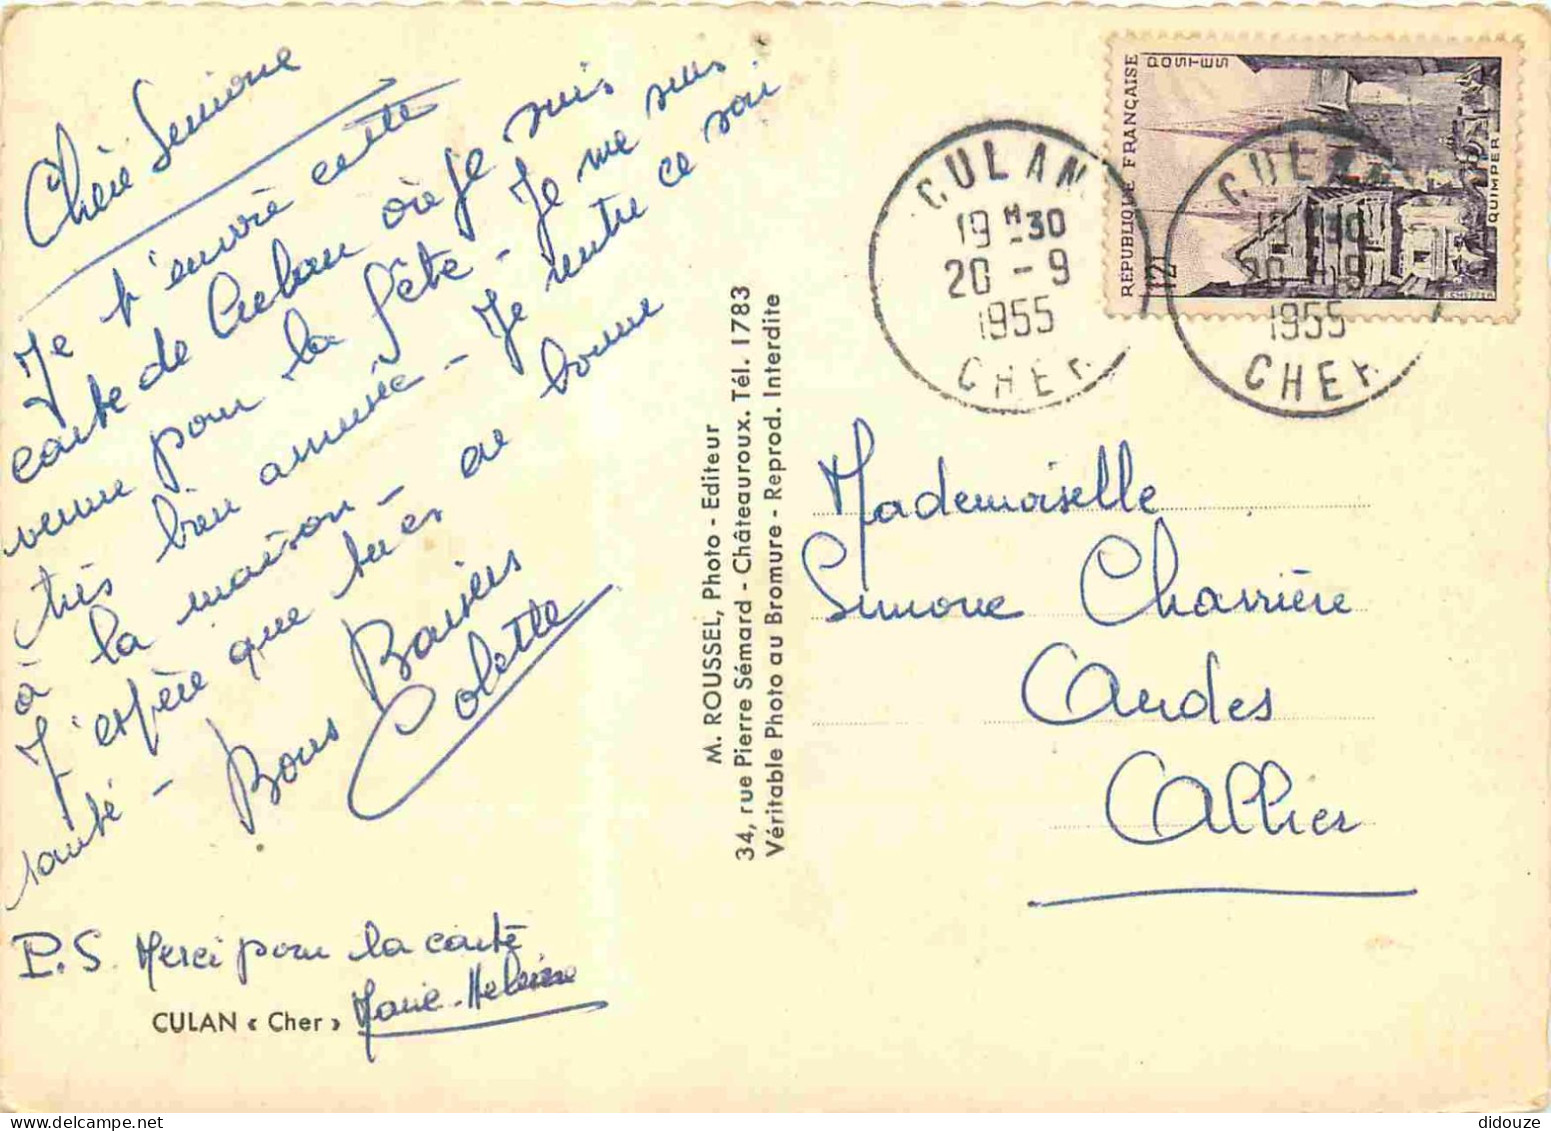 Chère Simone
Je t'envoie cette
carte de Culan où je suis
venue pour la fête - Je me suis
très bien amusée - Je rentre ce soir
à la maison -
J'espère que tu es en bonne
santé - Bons Baisers
Colette
P.S. Merci pour la carte
Marie-Helène
CULAN « Cher »
M. ROUSSEL, Photo - Editeur
34, rue Pierre Sémard - Châteauroux. Tél. 1783
Véritable Photo au Bromure - Reprod. Interdite
CULAN
19 H 30
20 - 9
1955
CHER
CULAN
19 H 30
20 - 9
1955
CHER
REPUBLIQUE FRANÇAISE
POSTES
12F
QUIMPER
Mademoiselle
Simone Charrière
Audes
Allier
didouze